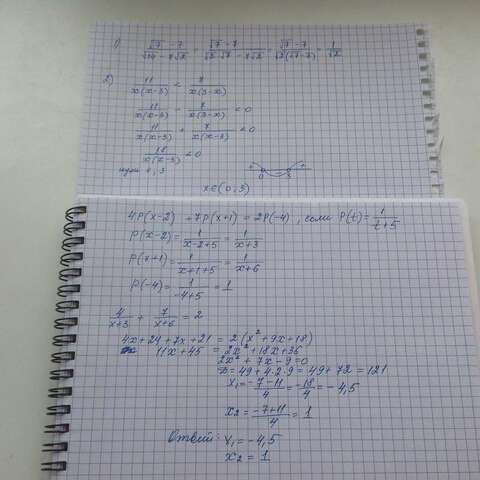 1) (√7 - 7)/(√14 - 7√2) = (√7 - 7)/(√2·√7 - 7√2) = (√7 - 7)/(√2(√7 - 7)) = 1/√2
2) 11/(x(x-3)) < 7/(x(3-x))
11/(x(x-3)) - 7/(x(3-x)) < 0
11/(x(x-3)) + 7/(x(x-3)) < 0
18/(x(x-3)) < 0
нули 0, 3
+ - +
0 3
x∈(0; 3)
4P(x-2) + 7P(x+1) = 2P(-4), если P(t) = 1/(t+5)
P(x-2) = 1/(x-2+5) = 1/(x+3)
P(7+1) = 1/(x+1+5) = 1/(x+6)
P(-4) = 1/(-4+5) = 1
4/(x+3) + 7/(x+6) = 2
4x+24+7x+21 = 2(x²+9x+18)
11x+45 = 2x²+18x+36
2x²+7x-9=0
D=49+4·2·9=49+72=121
x₁=(-7-11)/4=-18/4=-4,5
x₂=(-7+11)/4=1
Ответ: x₁=-4,5
x₂=1